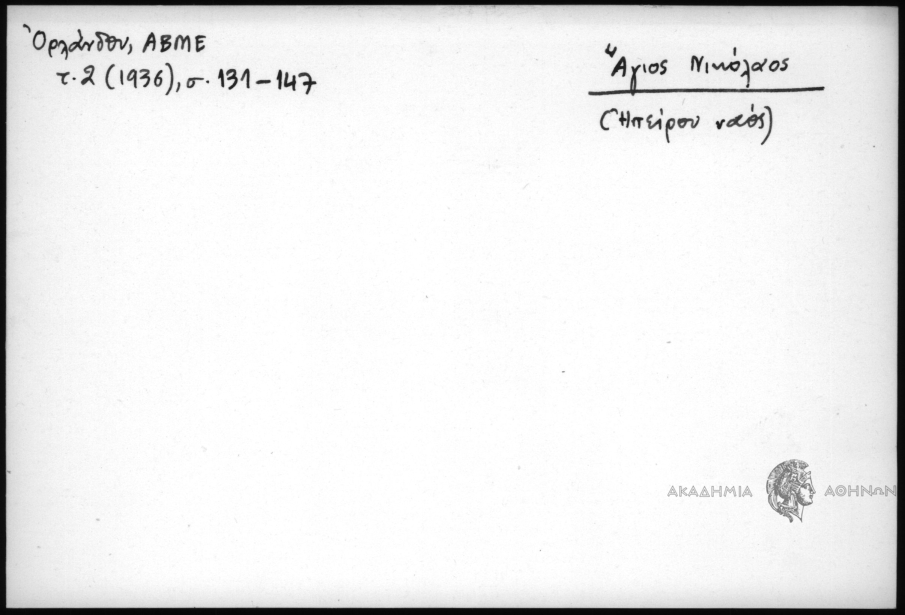 Ὀρλάνδου, ΑΒΜΕ
τ. 2 (1936), σ. 131-147
Ἅγιος Νικόλαος
(Ἠπείρου ναός)
ΑΚΑΔΗΜΙΑ ΑΘΗΝΩΝ